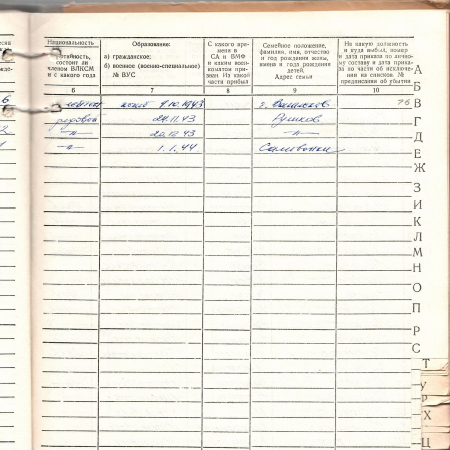 Национальность
Партийность,
состоит ли
членом ВЛКСМ
и с какого года
Образование:
а) гражданское:
б) военное (военно-специальное)
№ ВУС
С какого вре-
мени в
СА и ВМФ
и каким воен-
коматом при-
зван. Из какой
части прибыл
Семейное положение,
фамилия, имя, отчество
и год рождения жены,
имена и год рождения
детей.
Адрес семьи
На какую должность
и куда выбыл, номер
и дата приказа по лично-
му составу и дата прика-
за по части об исключе-
нии из списков. №
предписания об убытии
6 7 8 9 10
9.10.1943 76
рядовой 24.11.43 Рушков
—"— 20.12.43 —"—
—"— 1.1.44
А
Б
В
Г
Д
Е
Ж
З
И
К
Л
М
Н
О
П
Р
С
Т
У
Р
Х
Ц